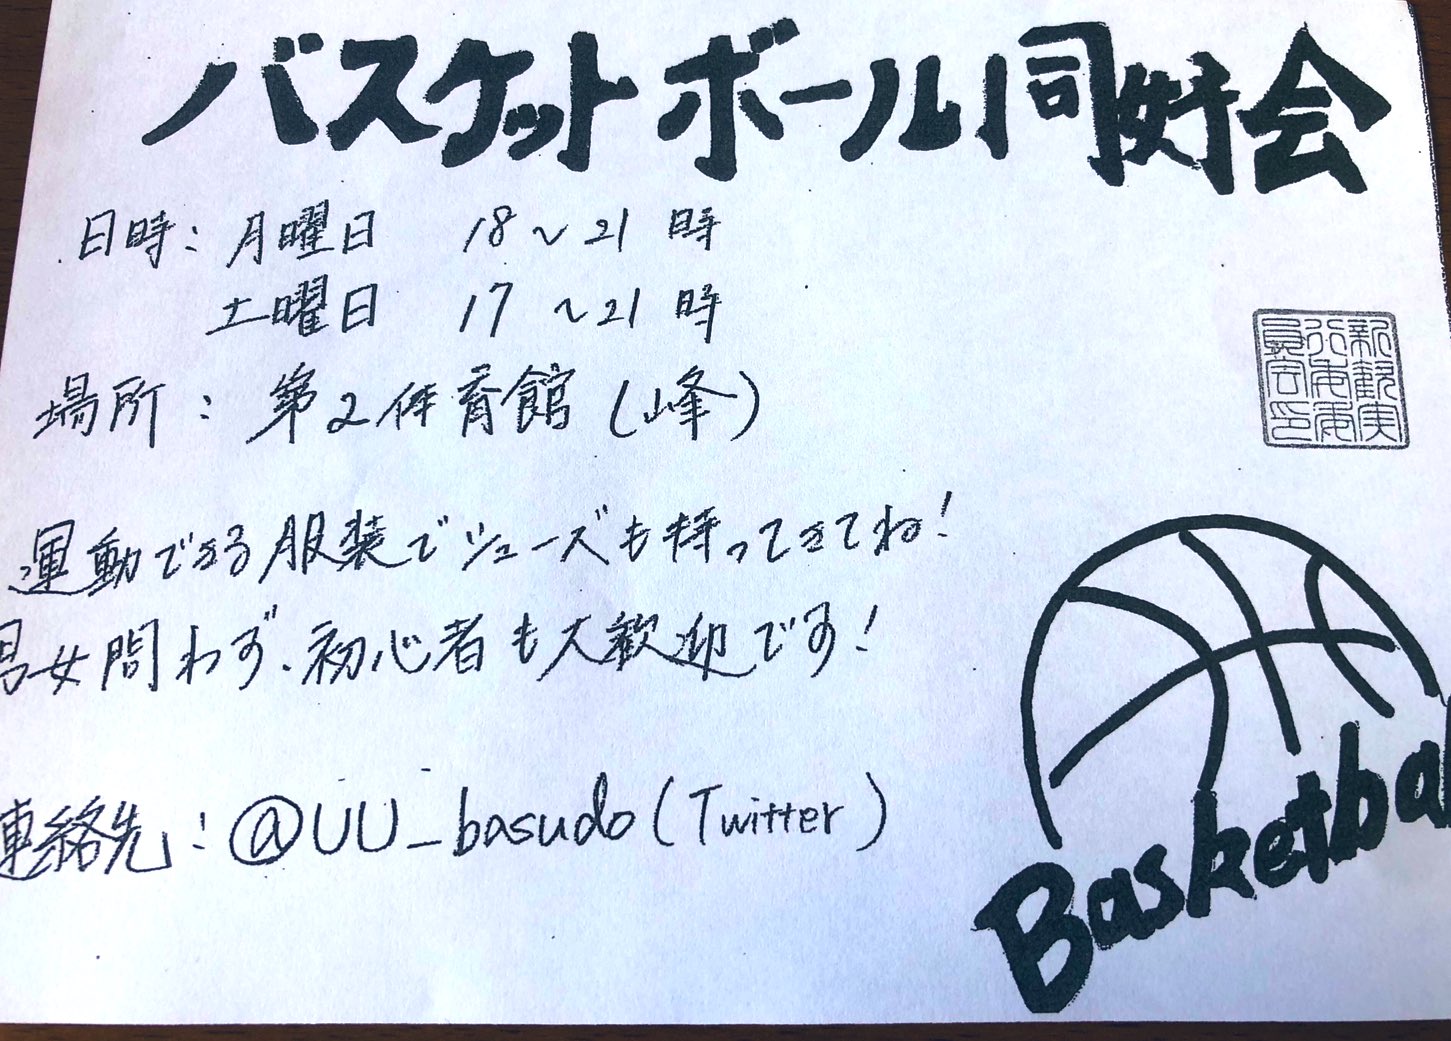 バスケットボール同好会
日時: 月曜日 18～21時
土曜日 17～21時
場所: 第2体育館(峰)
運動できる服装でシューズも持ってきてね!
男女問わず、初心者も大歓迎です!
連絡先: @UU_basudo(Twitter)
Basketbal